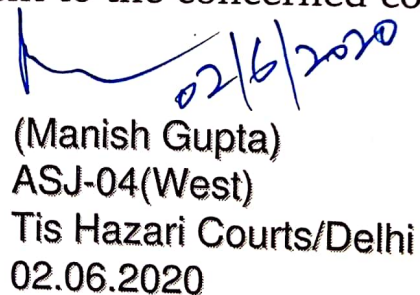 to the concerned co
02/6/2020
(Manish Gupta)
ASJ-04(West)
Tis Hazari Courts/Delhi
02.06.2020